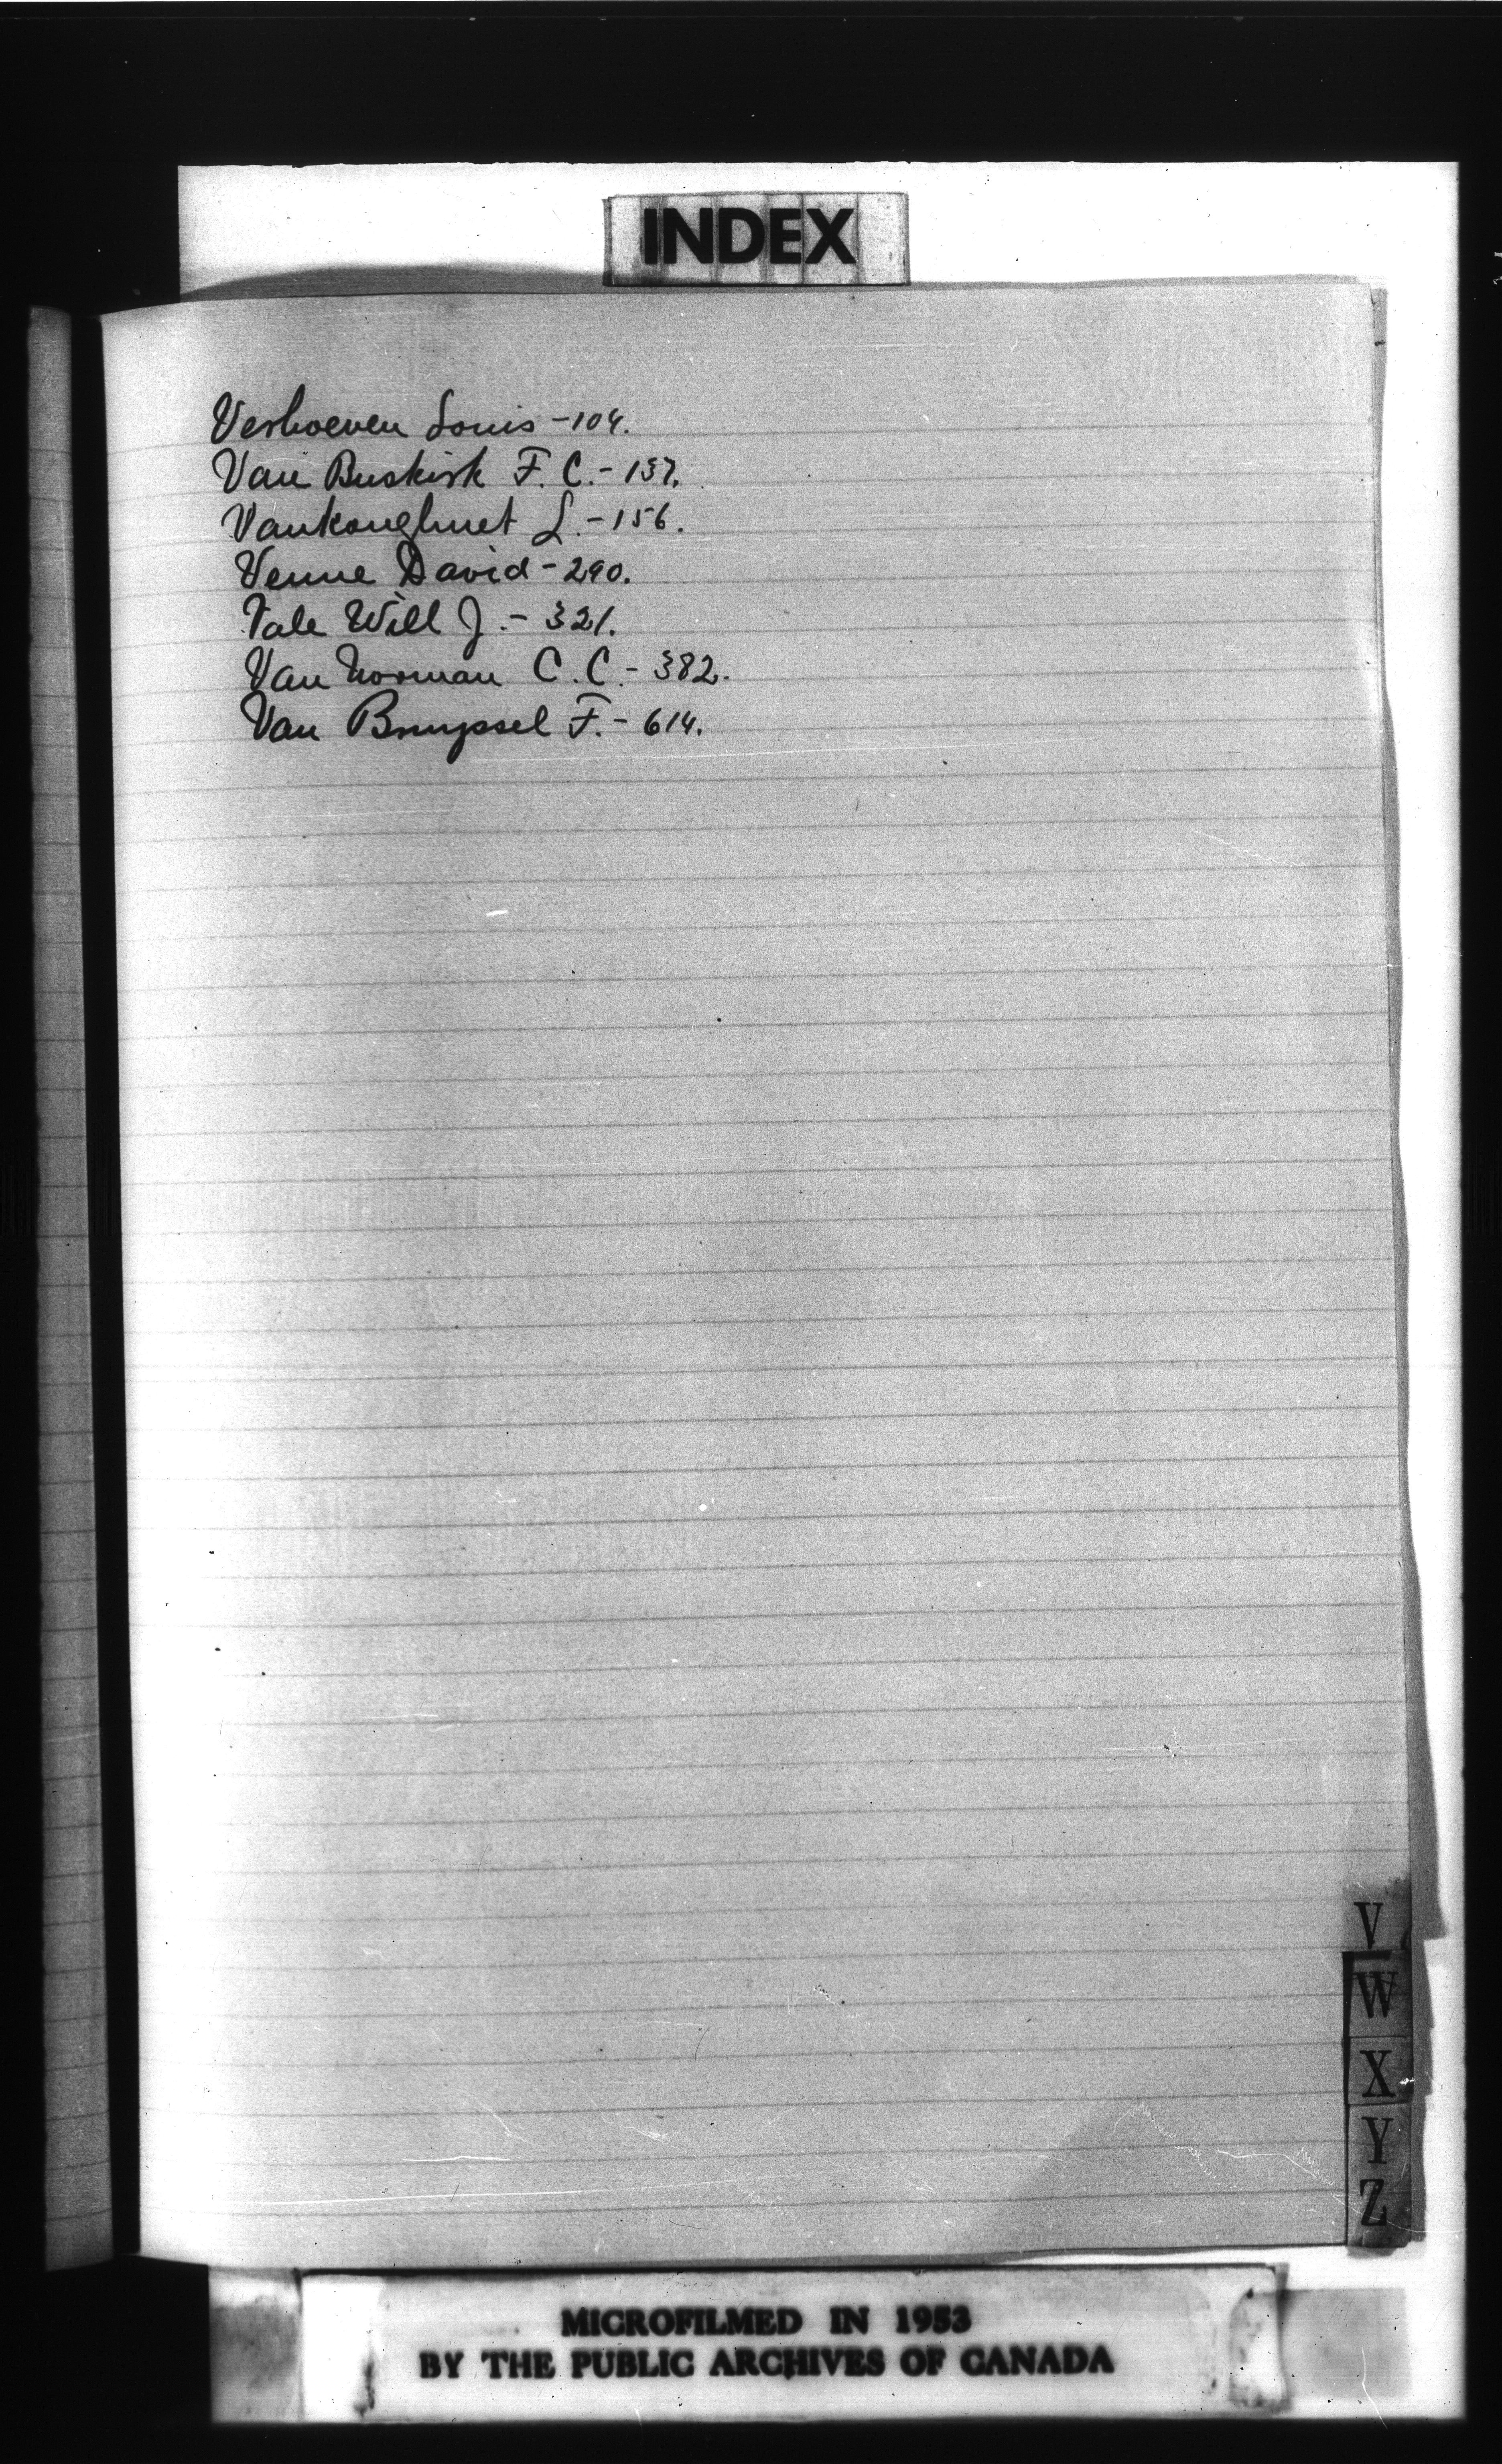 INDEX
Verhoeven Louis - 104.
Van Buskirk F. C. - 137.
Vankoughnet L. - 156.
Venne David - 290.
Vale Will J. - 321.
Van Norman C. C. - 382.
Van Bruyssel F. - 614.
V
W
X
Y
Z
MICROFILMED IN 1953
BY THE PUBLIC ARCHIVES OF CANADA